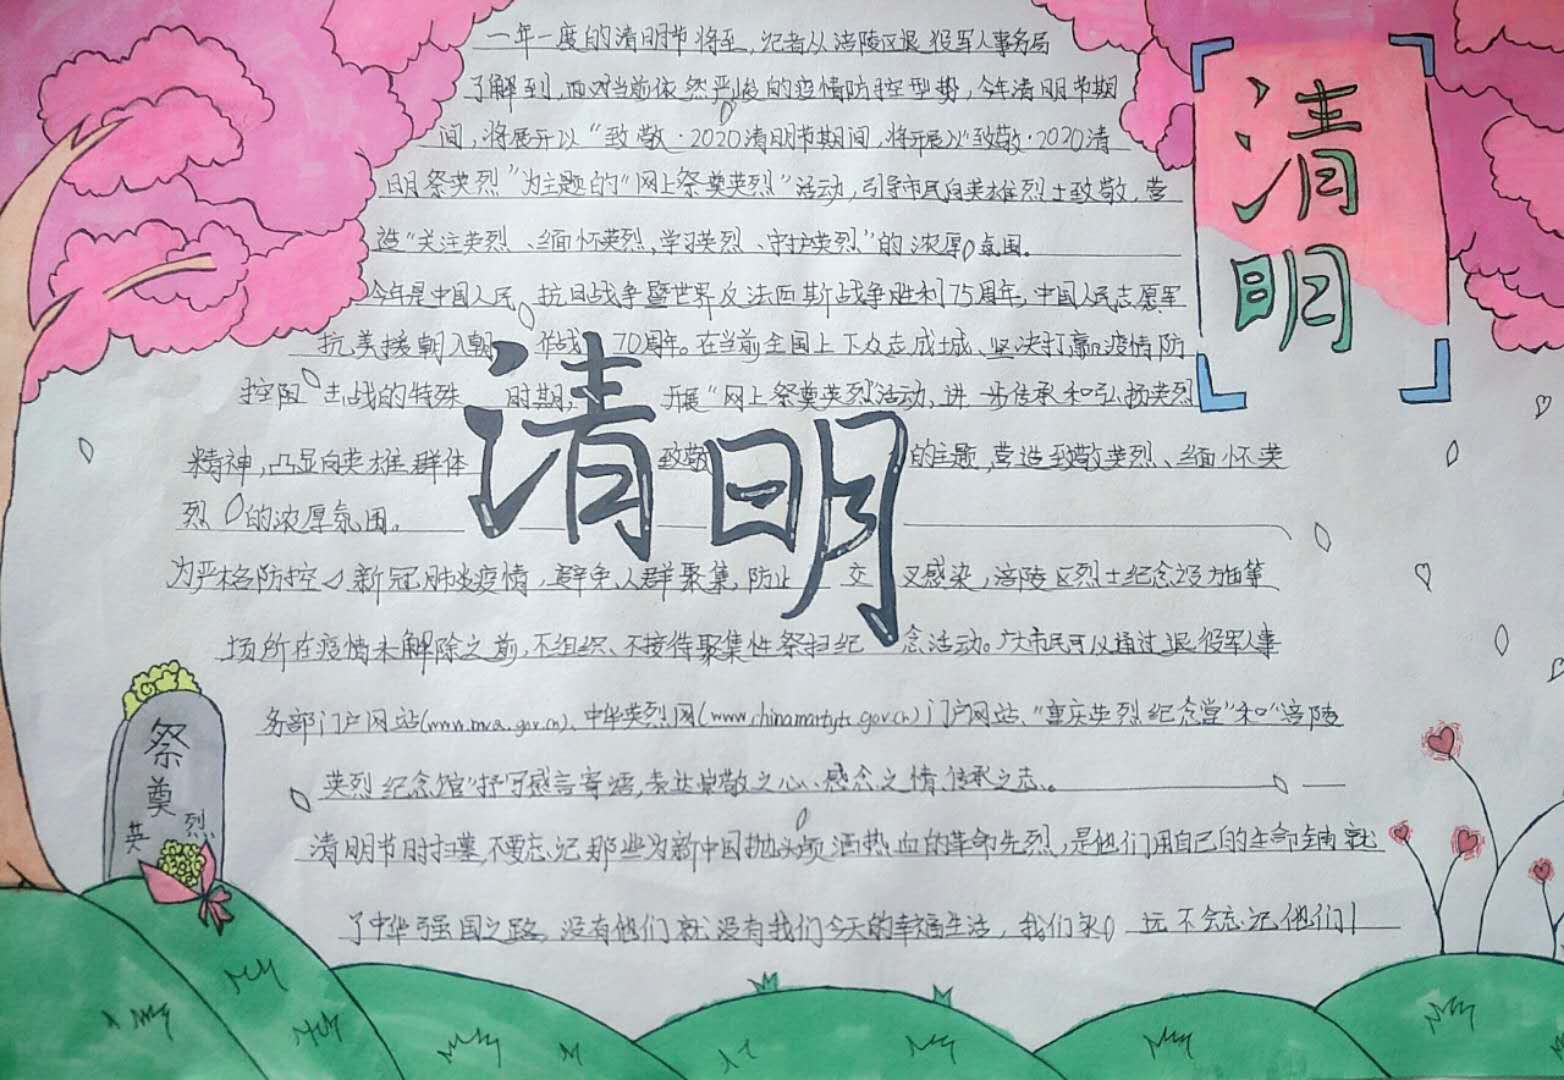 一年一度的清明节将至，记者从涪陵区退役军人事务局
了解到，面对当前依然严峻的疫情防控型势，今年清明节期
间，将展开以“致敬·2020清明节期间，将开展以“致敬·2020清
明祭英烈”为主题的“网上祭奠英烈”活动，引导市民向英雄烈士致敬，营
造“关注英烈、缅怀英烈，学习英烈、守护英烈”的浓厚氛围。
今年是中国人民抗日战争暨世界反法西斯战争胜利75周年，中国人民志愿军
抗美援朝入朝作战70周年。在当前全国上下众志成城、坚决打赢疫情防
控阻击战的特殊时期，开展“网上祭奠英烈”活动，进一步传承和弘扬英烈
精神，凸显向英雄群体致敬的主题，营造致敬英烈、缅怀英
烈的浓厚氛围。
为严格防控新冠肺炎疫情，避免人群聚集，防止交叉感染，涪陵区烈士纪念设施等
场所在疫情未解除之前，不组织、不接待聚集性祭扫纪念活动。广大市民可以通过退役军人事
务部门户网站(www.mva.gov.cn)、中华英烈网(www.chinamartyrs.gov.cn)门户网站、“重庆英烈纪念堂”和“涪陵
英烈纪念馆”抒写感言寄语，表达崇敬之心、感念之情、传承之志。
清明节时扫墓，不要忘记那些为新中国抛头颅洒热血的革命先烈，是他们用自己的生命铺就
了中华强国之路，没有他们就没有我们今天的幸福生活，我们永远不会忘记他们！
清明
清明
祭奠英烈